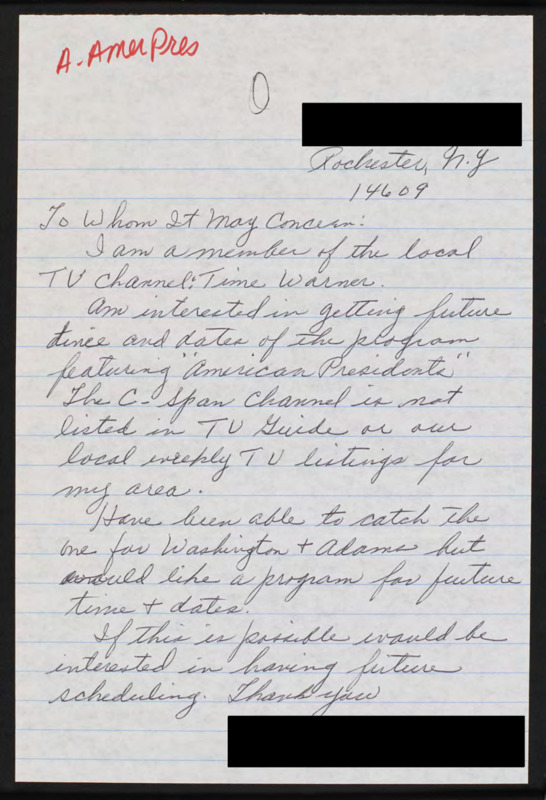 A. Amer Pres
0
Rochester, N.Y
14609
To Whom It May Concern:
I am a member of the local
TV Channel: Time Warner.
Am interested in getting future
times and dates of the program
featuring "American Presidents"
The C-Span Channel is not
listed in TV Guide or our
local weekly TV listings for
my area.
Have been able to catch the
one for Washington + Adams but
would like a program for future
time + dates.
If this is possible would be
interested in having future
scheduling. Thank you